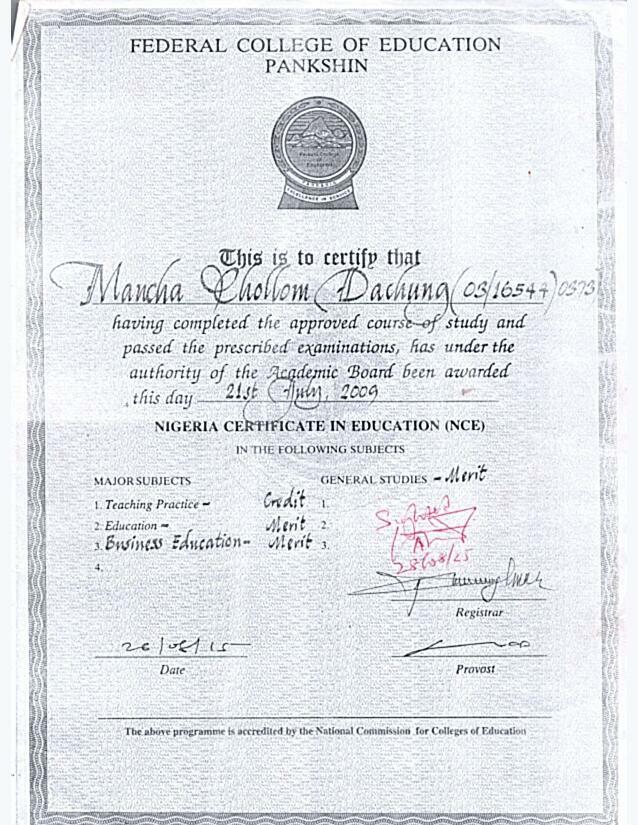 FEDERAL COLLEGE OF EDUCATION
PANKSHIN
EXCELLENCE IN SERVICE
This is to certify that
Mancha Chollom Dachung (03/16544) 0373
having completed the approved course of study and
passed the prescribed examinations, has under the
authority of the Academic Board been awarded
this day 21st July, 2009
NIGERIA CERTIFICATE IN EDUCATION (NCE)
IN THE FOLLOWING SUBJECTS
MAJOR SUBJECTS GENERAL STUDIES - Merit
1. Teaching Practice - Credit 1.
2. Education - Merit 2.
3. Business Education - Merit 3.
4.
28/08/25
Registrar
26/08/15
Date Provost
The above programme is accredited by the National Commission for Colleges of Education